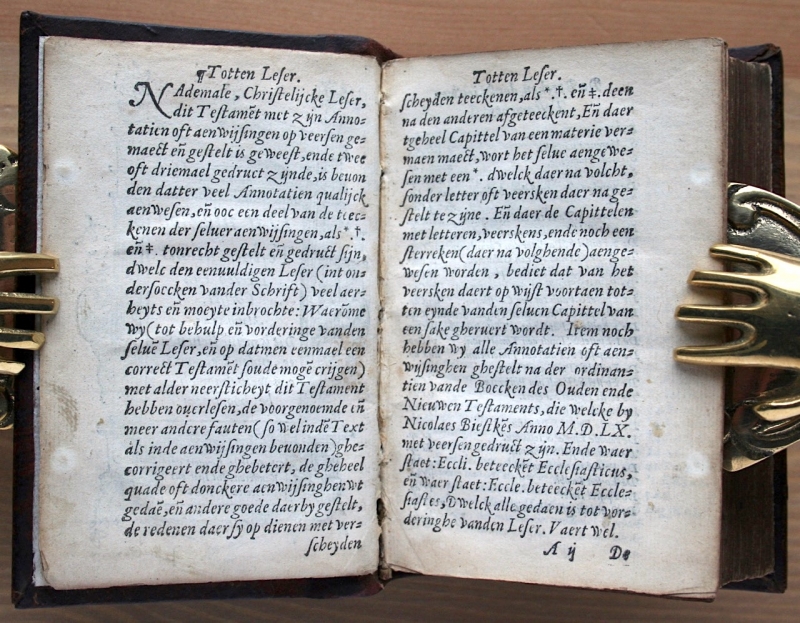 ¶Totten Leſer.
NAdemale, Chriſtelijcke Leſer,
dit Teſtamēt met zijn Anno⸗
tatien oft aenwijſingen op veerſen ge⸗
maect en̄ geſtelt is geweeſt, ende twee
oft driemael gedruct zijnde, is beuon
den datter veel Annotatien qualijck
aenweſen, en̄ ooc een deel van de teec⸗
kenen der ſeluer aenwijſingen, als *. †.
en̄ ‡. tonrecht geſtelt en̄ gedruct ſijn,
dwelc den eenuuldigen Leſer (int on⸗
derſoecken vander Schrift) veel aer⸗
beyts en̄ moeyte inbrochte: Waerōme
wy (tot behulp en̄ vorderinge vanden
ſeluē Leſer, en̄ op datmen eenmael een
correct Teſtamēt ſoude mogē crijgen)
met alder neerſticheyt dit Teſtament
hebben ouerleſen, de voorgenoemde en̄
meer andere fauten (ſo wel indē Text
als inde aenwijſingen beuonden) ghe⸗
corrigeert ende ghebetert, de gheheel
quade oft donckere aenwijſinghen wt
gedaē, en̄ andere goede daerby geſtelt,
de redenen daer ſy op dienen met ver⸗
ſcheyden
Totten Leſer.
ſcheyden teeckenen, als *. †. en̄ ‡. deen
na den anderen afgeteeckent, En̄ daer
tgeheel Capittel van een materie ver⸗
maen maect, wort het ſelue aengewe⸗
ſen met een *. dwelck daer na volcht,
ſonder letter oft veersken daer na ge⸗
ſtelt te zijne. En̄ daer de Capittelen
met letteren, veerskens, ende noch een
ſterreken (daer na volghende) aenge⸗
weſen worden, bediet dat van het
veersken daert op wijſt voortaen tot⸗
ten eynde vanden ſeluen Capittel van
een ſake gheruert wordt. Item noch
hebben wy alle Annotatien oft aen⸗
wijſinghen gheſtelt na der ordinan⸗
tien vande Boecken des Ouden ende
Nieuwen Teſtaments, die welcke by
Nicolaes Bieſtkēs Anno M.D.LX.
met veerſen gedruct zijn. Ende waer
ſtaet: Eccli. beteeckēt Eccleſiaſticus,
en̄ waer ſtaet: Eccle. beteeckēt Eccle⸗
ſiaſtes, Dwelck alle gedaen is tot vor⸗
deringhe vanden Leſer. Vaert wel.
A ij De